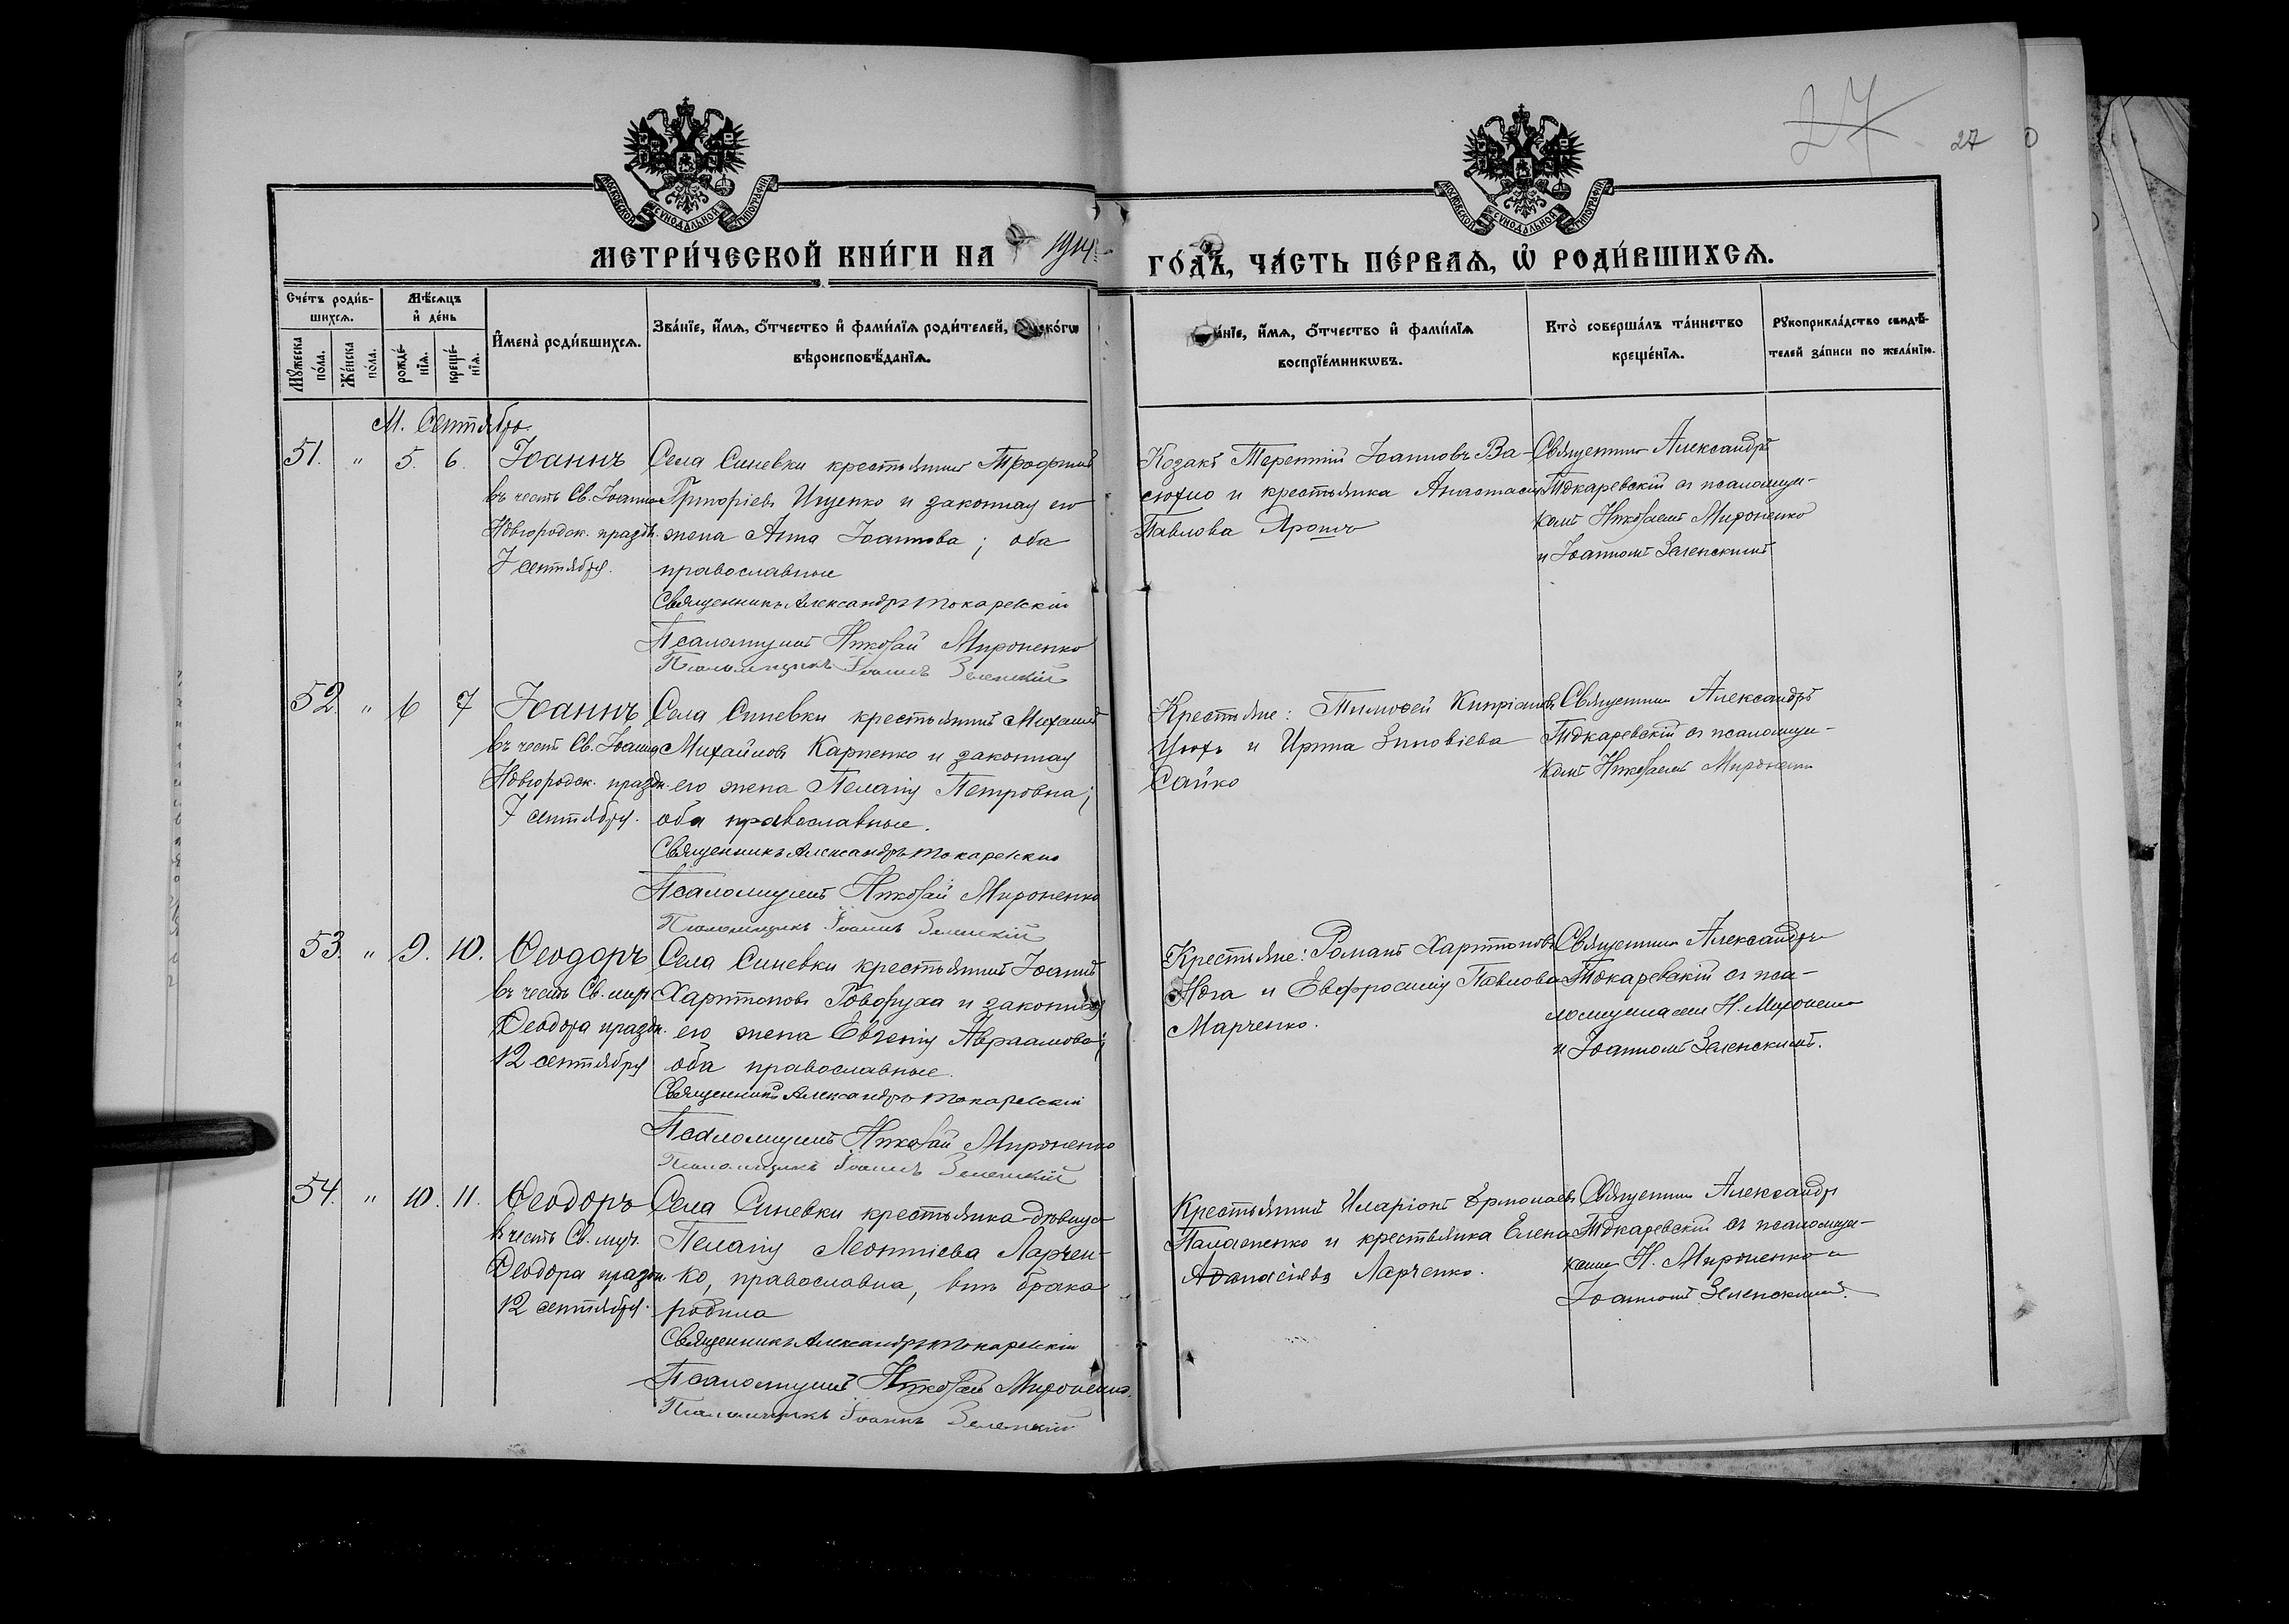 27
27
МОСКОВСКОЙ СѴНОДАЛЬНОЙ ТИПОГРАФІИ
МОСКОВСКОЙ СѴНОДАЛЬНОЙ ТИПОГРАФІИ
МЕТРИ́ЧЕСКОЙ КНИ́ГИ НА 1914
ГО́ДЪ, ЧА́СТЬ ПЕ́РВАѦ, Ѡ҆ РОДИ́ВШИХСѦ.
Сче́тъ роди́в-
шихсѧ.
Мꙋ́жеска по́ла.
Же́нска по́ла.
Мѣ́сѧцъ
и҆ де́нь
рожде́-
нїѧ.
креще́-
нїѧ.
И҆мена̀ роди́вшихсѧ.
Зва́нїе, и҆́мѧ, ѻ҆́тчество и҆ фами́лїѧ роди́телей,
вѣроисповѣ́данїѧ.
а́нїе, и҆́мѧ, ѻ҆́тчество и҆ фами́лїѧ
воспрїе́мникѡвъ.
Кто̀ соверша́лъ та́инство
креще́нїѧ.
Рꙋкоприкла́дство свидѣ́-
телей за́писи по жела́нїю.
М. Сентябрь.
51. " 5. 6. Іоаннъ
въ честь Св. Іоанна
Новгородск. праздн.
7 сентября.
Села Синевки крестьянинъ Трофимъ
Григоріевъ Ищенко и законная его
жена Анна Іоаннова; оба
православные
Священникъ Александръ Токаревскій
Псаломщикъ Николай Мироненко
Псаломщикъ Іоаннъ Зеленскій
Козакъ Терентій Іоанновъ Ва-
сюхно и крестьянка Анастасія
Павлова
Священник Александръ
Токаревскій съ псаломщи-
комъ Николаемъ Мироненко
и Іоанномъ Зеленскимъ
52. " 6 7 Іоаннъ
въ честь Св. Іоанна
Новгородск. праздн.
7 сентября.
Села Синевки крестьянинъ Михаилъ
Михайловъ Карпенко и законная
его жена Пелагія Петровна;
оба православные.
Священникъ Александръ Токаревскій
Псаломщикъ Николай Мироненко
Псаломщикъ Іоаннъ Зеленскій
Крестьяне: Тимоѳей Кипріановъ
и Ирина Зиновіева
Сайко
Священник Александръ
Токаревскій съ псаломщи-
комъ Николаемъ Мироненко
53. " 9. 10. Ѳеодоръ
въ честь Св. муч.
Ѳеодора праздн.
12 сентября
Села Синевки крестьянинъ Іоаннъ
Харитоновъ Говоруха и законная
его жена Евгенія Авраамова;
оба православные.
Священникъ Александръ Токаревскій
Псаломщикъ Николай Мироненко
Псаломщикъ Іоаннъ Зеленскій
Крестьяне: Романъ Харитоновъ
Нога и Евфросинія Павлова
Марченко.
Священник Александръ
Токаревскій съ пса-
ломщиками Н. Мироненко
и Іоанномъ Зеленскимъ.
54. " 10. 11. Ѳеодоръ
въ честь Св. муч.
Ѳеодора праздн.
12 сентября.
Села Синевки крестьянка-дѣвица
Пелагія Леонтіева Ларчен-
ко, православна, внѣ брака
родила
Священникъ Александръ Токаревскій
Псаломщикъ Николай Мироненко.
Псаломщикъ Іоаннъ Зеленскій
Крестьянинъ Иларіонъ Ермолаевъ
Паламенко и крестьянка Елена
Аѳанасіева Ларченко.
Священник Александръ
Токаревскій съ псаломщи-
ками Н. Мироненко и
Іоанномъ Зеленскимъ.